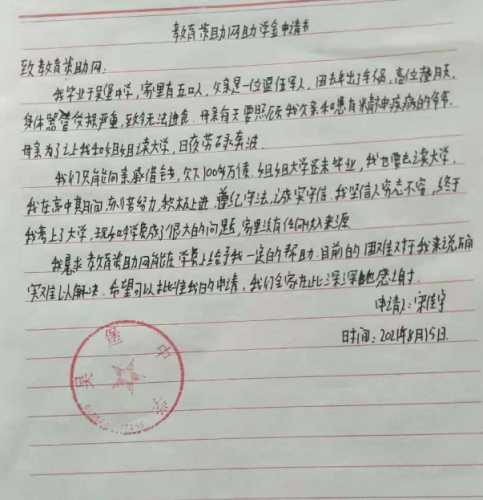 教育资助网助学金申请书
致教育资助网:
我毕业于吴堡中学,家里有五口人,父亲是一位退伍军人,因去年出了车祸,高位截肢,
身体器官受损严重,致今无法进食.母亲每天要照顾我父亲和患有精神疾病的爷爷.
母亲为了让我和姐姐读大学,日夜劳碌奔波.
我们只能向亲戚借钱,欠下100多万债.姐姐大学还未毕业,我也要去读大学,
我在高中其间,刻苦努力,积极上进,遵纪守法,诚实守信.我坚信人穷志不穷,终于
我考上了大学,现如今学费成了很大的问题,家里没有任何收入来源
我恳求教育资助网能在学费上给予我一定的帮助.目前的困难对于我来说确
实难以解决.希望可以批准我的申请,我们全家在此深深地感谢!
申请人:宋佳宇
时间:2021年8月15日.
吴堡中学